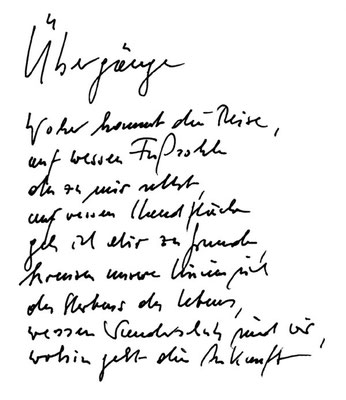 Übergänge
Woher kommt die Reise,
auf wessen Fußsohle
du zu mir selbst,
auf wessen
geh ich dir zu Grunde,
kreuzen unsere Linien sich
des Sterbens des Lebens,
wessen sind wir,
wohin geht die Ankunft